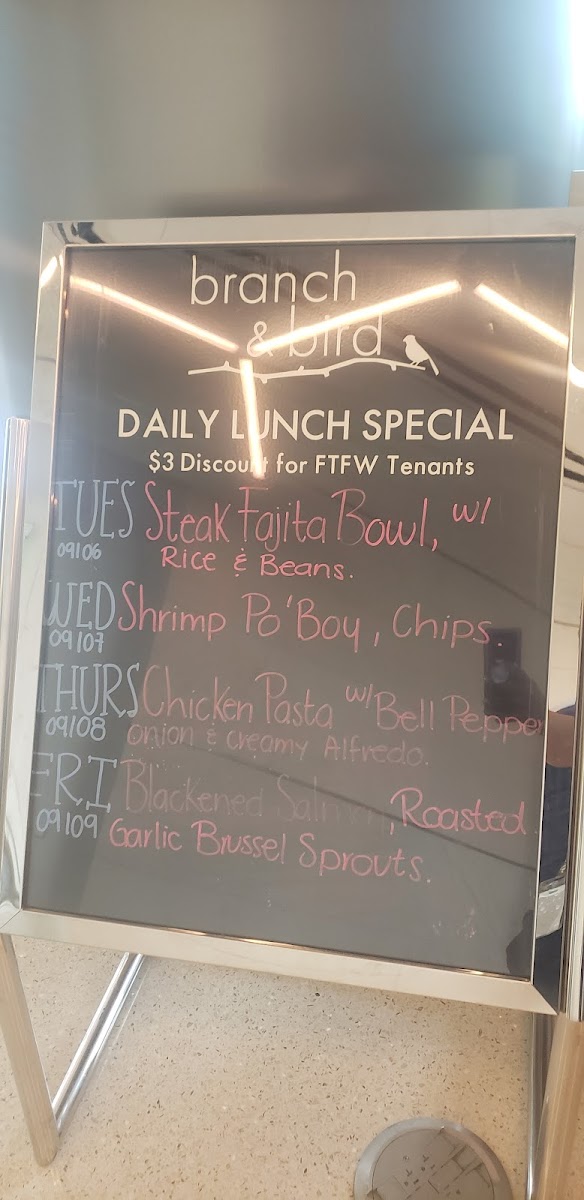 branch
& bird
DAILY LUNCH SPECIAL
$3 Discount for FTFW Tenants
TUES Steak Fajita Bowl, w/
09/06 Rice & Beans.
WED Shrimp Po'Boy, Chips
09/07
THURS Chicken Pasta w/ Bell Pepper
09/08 onion & creamy Alfredo.
FRI Blackened Salmon, Roasted
09/09 Garlic Brussel Sprouts.